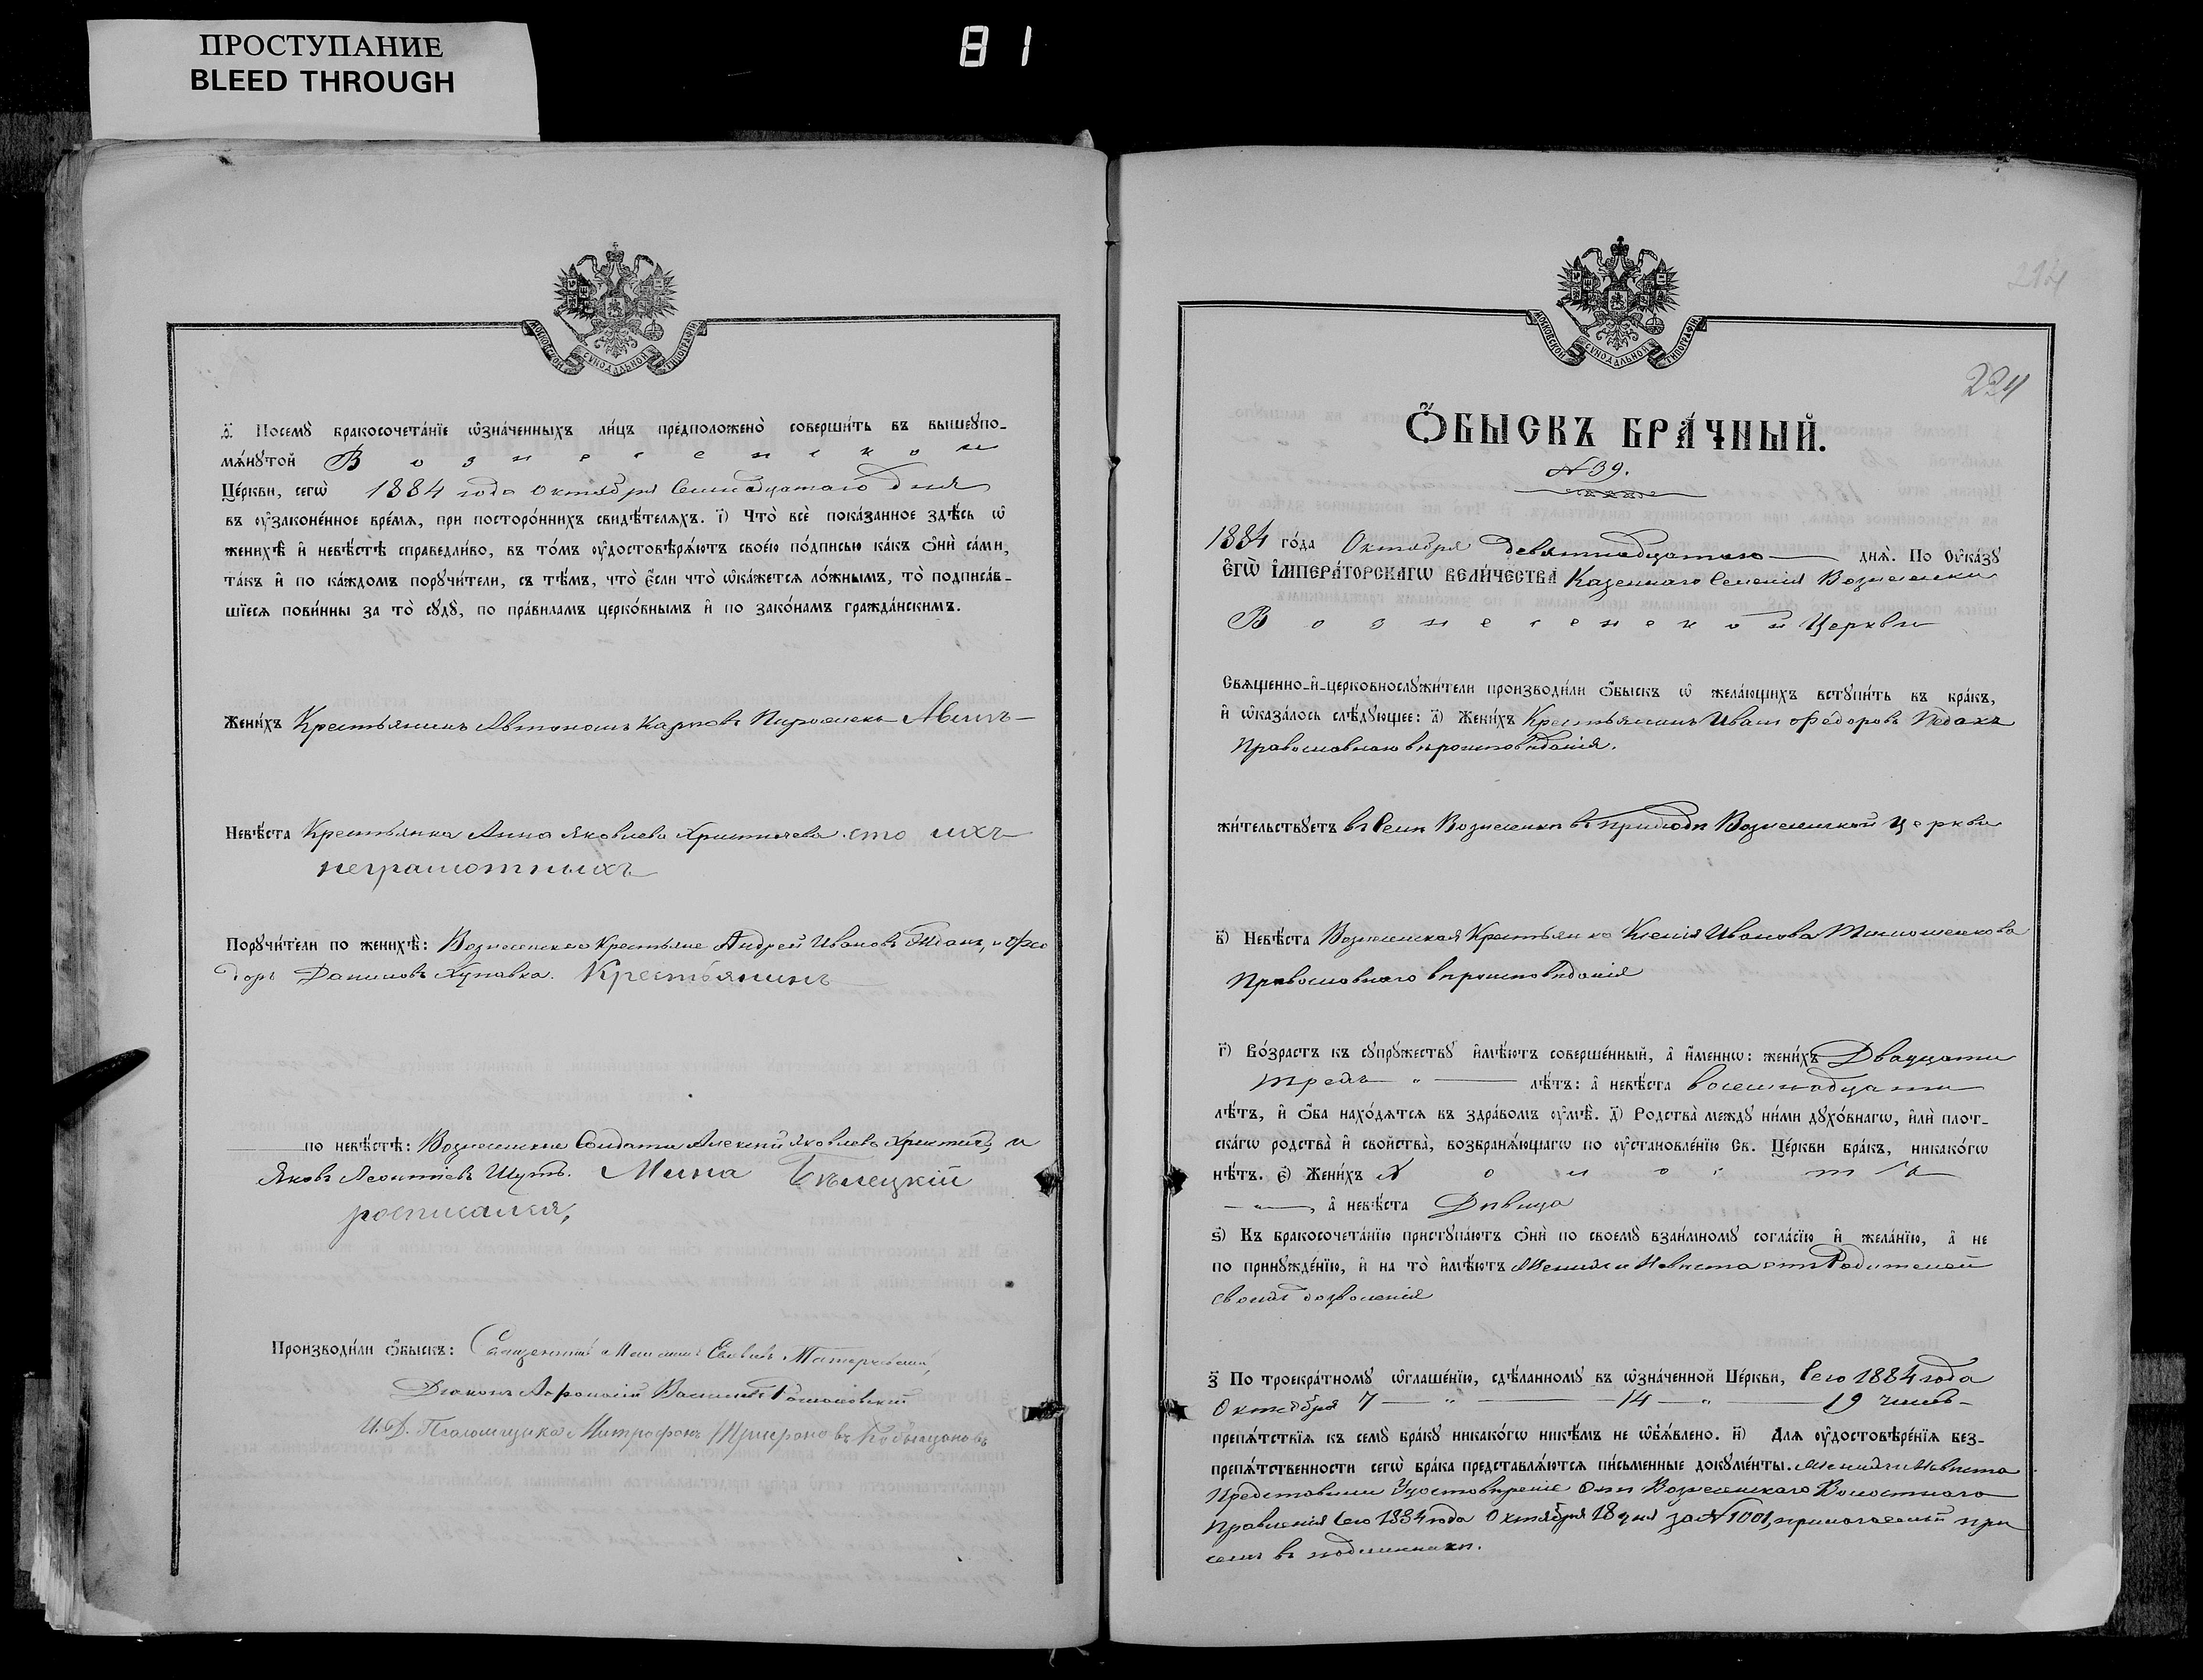 ПРОСТУПАНИЕ
BLEED THROUGH
81
МОСКОВСКОЙ СѴНОДАЛЬНОЙ ТИПОГРАФІИ
д҃і Посемꙋ̀ бракосочета́нїе ѡ҆зна́ченныхъ ли́цъ предположено̀ соверши́ть въ вышеꙋпо-
мѧ́нꙋтой Вознесенской
Це́ркви, сегѡ̀ 1884 года Октября Семнадцатаго дня
въ ᲂу҆законе́нное вре́мѧ, при посторо́ннихъ свидѣ́телѧхъ. і҃) Что̀ всѐ пока́занное здѣ́сь ѡ҆
женихѣ̀ и҆ невѣ́стѣ справедли́во, въ то́мъ ᲂу҆достовѣрѧ́ютъ свое́ю по́дписью ка́къ ѻ҆нѝ са́ми,
та́къ и҆ по ка́ждомъ порꙋчи́тели, съ тѣ́мъ, что̀ є҆́сли что̀ ѡ҆ка́жетсѧ ло́жнымъ, то̀ подписа́в-
шїесѧ пови́нны за то̀ сꙋдꙋ̀, по пра́виламъ церко́внымъ и҆ по зако́намъ гражда́нскимъ.
Жени́хъ Крестьянинъ Автономъ Карповъ
Невѣ́ста Крестьянка Анна Яковлева Христичева
неграмотныхъ
Порꙋчи́тели по женихѣ̀: Вознесенскіе Крестьяне Андрей Ивановъ Жданъ, и Фео
доръ Даниловъ Кулавка. Крестьянинъ
по невѣ́стѣ: Вознесенскіе Солдаты Алексѣй Яковлевъ Христичъ, и
Яковъ Леонтіевъ Шутъ. Мина Бѣлецкій
росписался,
Производи́ли ѻ҆́быскъ: Священникъ
Діаконъ Афанасій Васильевъ
И. Д. Псаломщика Митрофанъ
214
224
МОСКОВСКОЙ СѴНОДАЛЬНОЙ ТИПОГРАФІИ
Ѻ҆́БЫСКЪ БРА́ЧНЫЙ.
N 39.
1884 го́да Октября девятнадцатаго днѧ̀. По Оу҆ка́зꙋ
Є҆ГѠ̀ І҆МПЕРА́ТОРСКАГѠ ВЕЛИ́ЧЕСТВА Казеннаго Селенія Вознесенки
Вознесенской Церкви
Свѧщенно-и҆-церковнослꙋжи́тели производи́ли ѻ҆́быскъ ѡ҆ жела́ющихъ встꙋпи́ть въ бра́къ,
и҆ ѡ҆каза́лось слѣ́дꙋющее: а҃) Жени́хъ Крестьянинъ Иванъ Федоровъ Педахъ
Православнаго вѣроисповѣданія.
жи́тельствꙋетъ въ Селѣ Вознесенкѣ въ приходѣ Вознесенской Церкви
в҃) Невѣ́ста Вознесенская Крестьянка Ксенія Иванова Тимошенкова
Православнаго вѣроисповѣданія
г҃) Во́зрастъ къ сꙋпрꙋ́жествꙋ и҆мѣ́ютъ соверше́нный, а҆ и҆́менно: жени́хъ Двадцати
трехъ лѣ́тъ: а҆ невѣ́ста восемнадцати
лѣ́тъ, и҆ ѻ҆́ба нахо́дѧтсѧ въ здра́вомъ ᲂу҆мѣ̀. д҃) Родства̀ междꙋ ни́ми дꙋхо́внагѡ, и҆лѝ плот-
ска́гѡ родства̀ и҆ свойства̀, возбранѧ́ющагѡ по ᲂу҆становле́нїю Св. Це́ркви бра́къ, никако́гѡ
нѣ́тъ. є҃) Жени́хъ Холостъ
, а҆ невѣ́ста Дѣвица
ѕ҃) Къ бракосочета́нїю пристꙋпа́ютъ ѻ҆нѝ по своемꙋ̀ взаи́мномꙋ согла́сїю и҆ жела́нїю, а҆ не
по принꙋжде́нїю, и҆ на то̀ и҆мѣ́ютъ Женихъ и Невѣста отъ Родителей
своихъ дозволенія
з҃ По троекра́тномꙋ ѡ҆глаше́нїю, сдѣ́ланномꙋ въ ѡ҆зна́ченной Це́ркви, Сего 1884 года
Октября 7 — „ — 14 — „ — 19 чиселъ
препѧ́тствїѧ къ семꙋ̀ бра́кꙋ никако́гѡ никѣ́мъ не ѡ҆б̾ѧ́влено. и҃) Длѧ ᲂу҆достовѣре́нїѧ без-
препѧ́тственности сегѡ̀ бра́ка представлѧ́ютсѧ пи́сьменные докꙋме́нты. Женихъ и Невѣста
Представили Удостовѣреніе Отъ Вознесенскаго Волостного
Правленія Сего 1884 года Октября 18 дня за N 1001, прилагаемый при
семъ въ подлинникѣ.